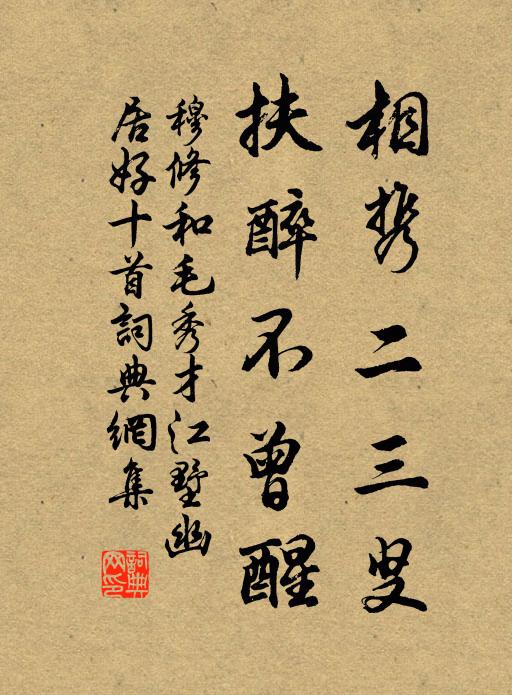 相携二三叟
扶醉不曾醒
穆修和毛秀才江墅幽
居好十首詞典網集
詞典
网印